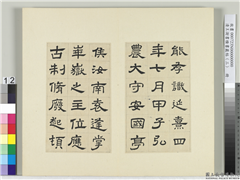 能存識延熹四
年七月甲子弘
農大守安國亭
侯汝南袁逢掌
華嶽之主位應
古制脩廢起頓